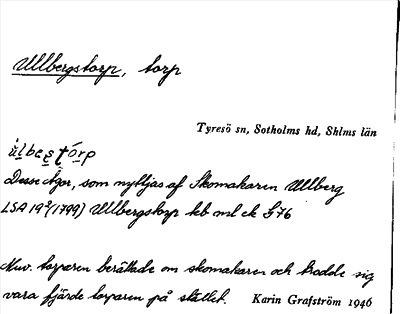 Ullbergstorp, torp
Tyresö sn, Sotholms hd, Sthlms län
ùlbestórp
Desse ägor, som nyttjas af Skomakaren Ullberg
LSA 19 (1799) Ullbergstorp lèb ml ek
Nuv. torparen berättade om skomakaren och trodde sig
vara fjärde torparen på stället. Karin Grafström 1946